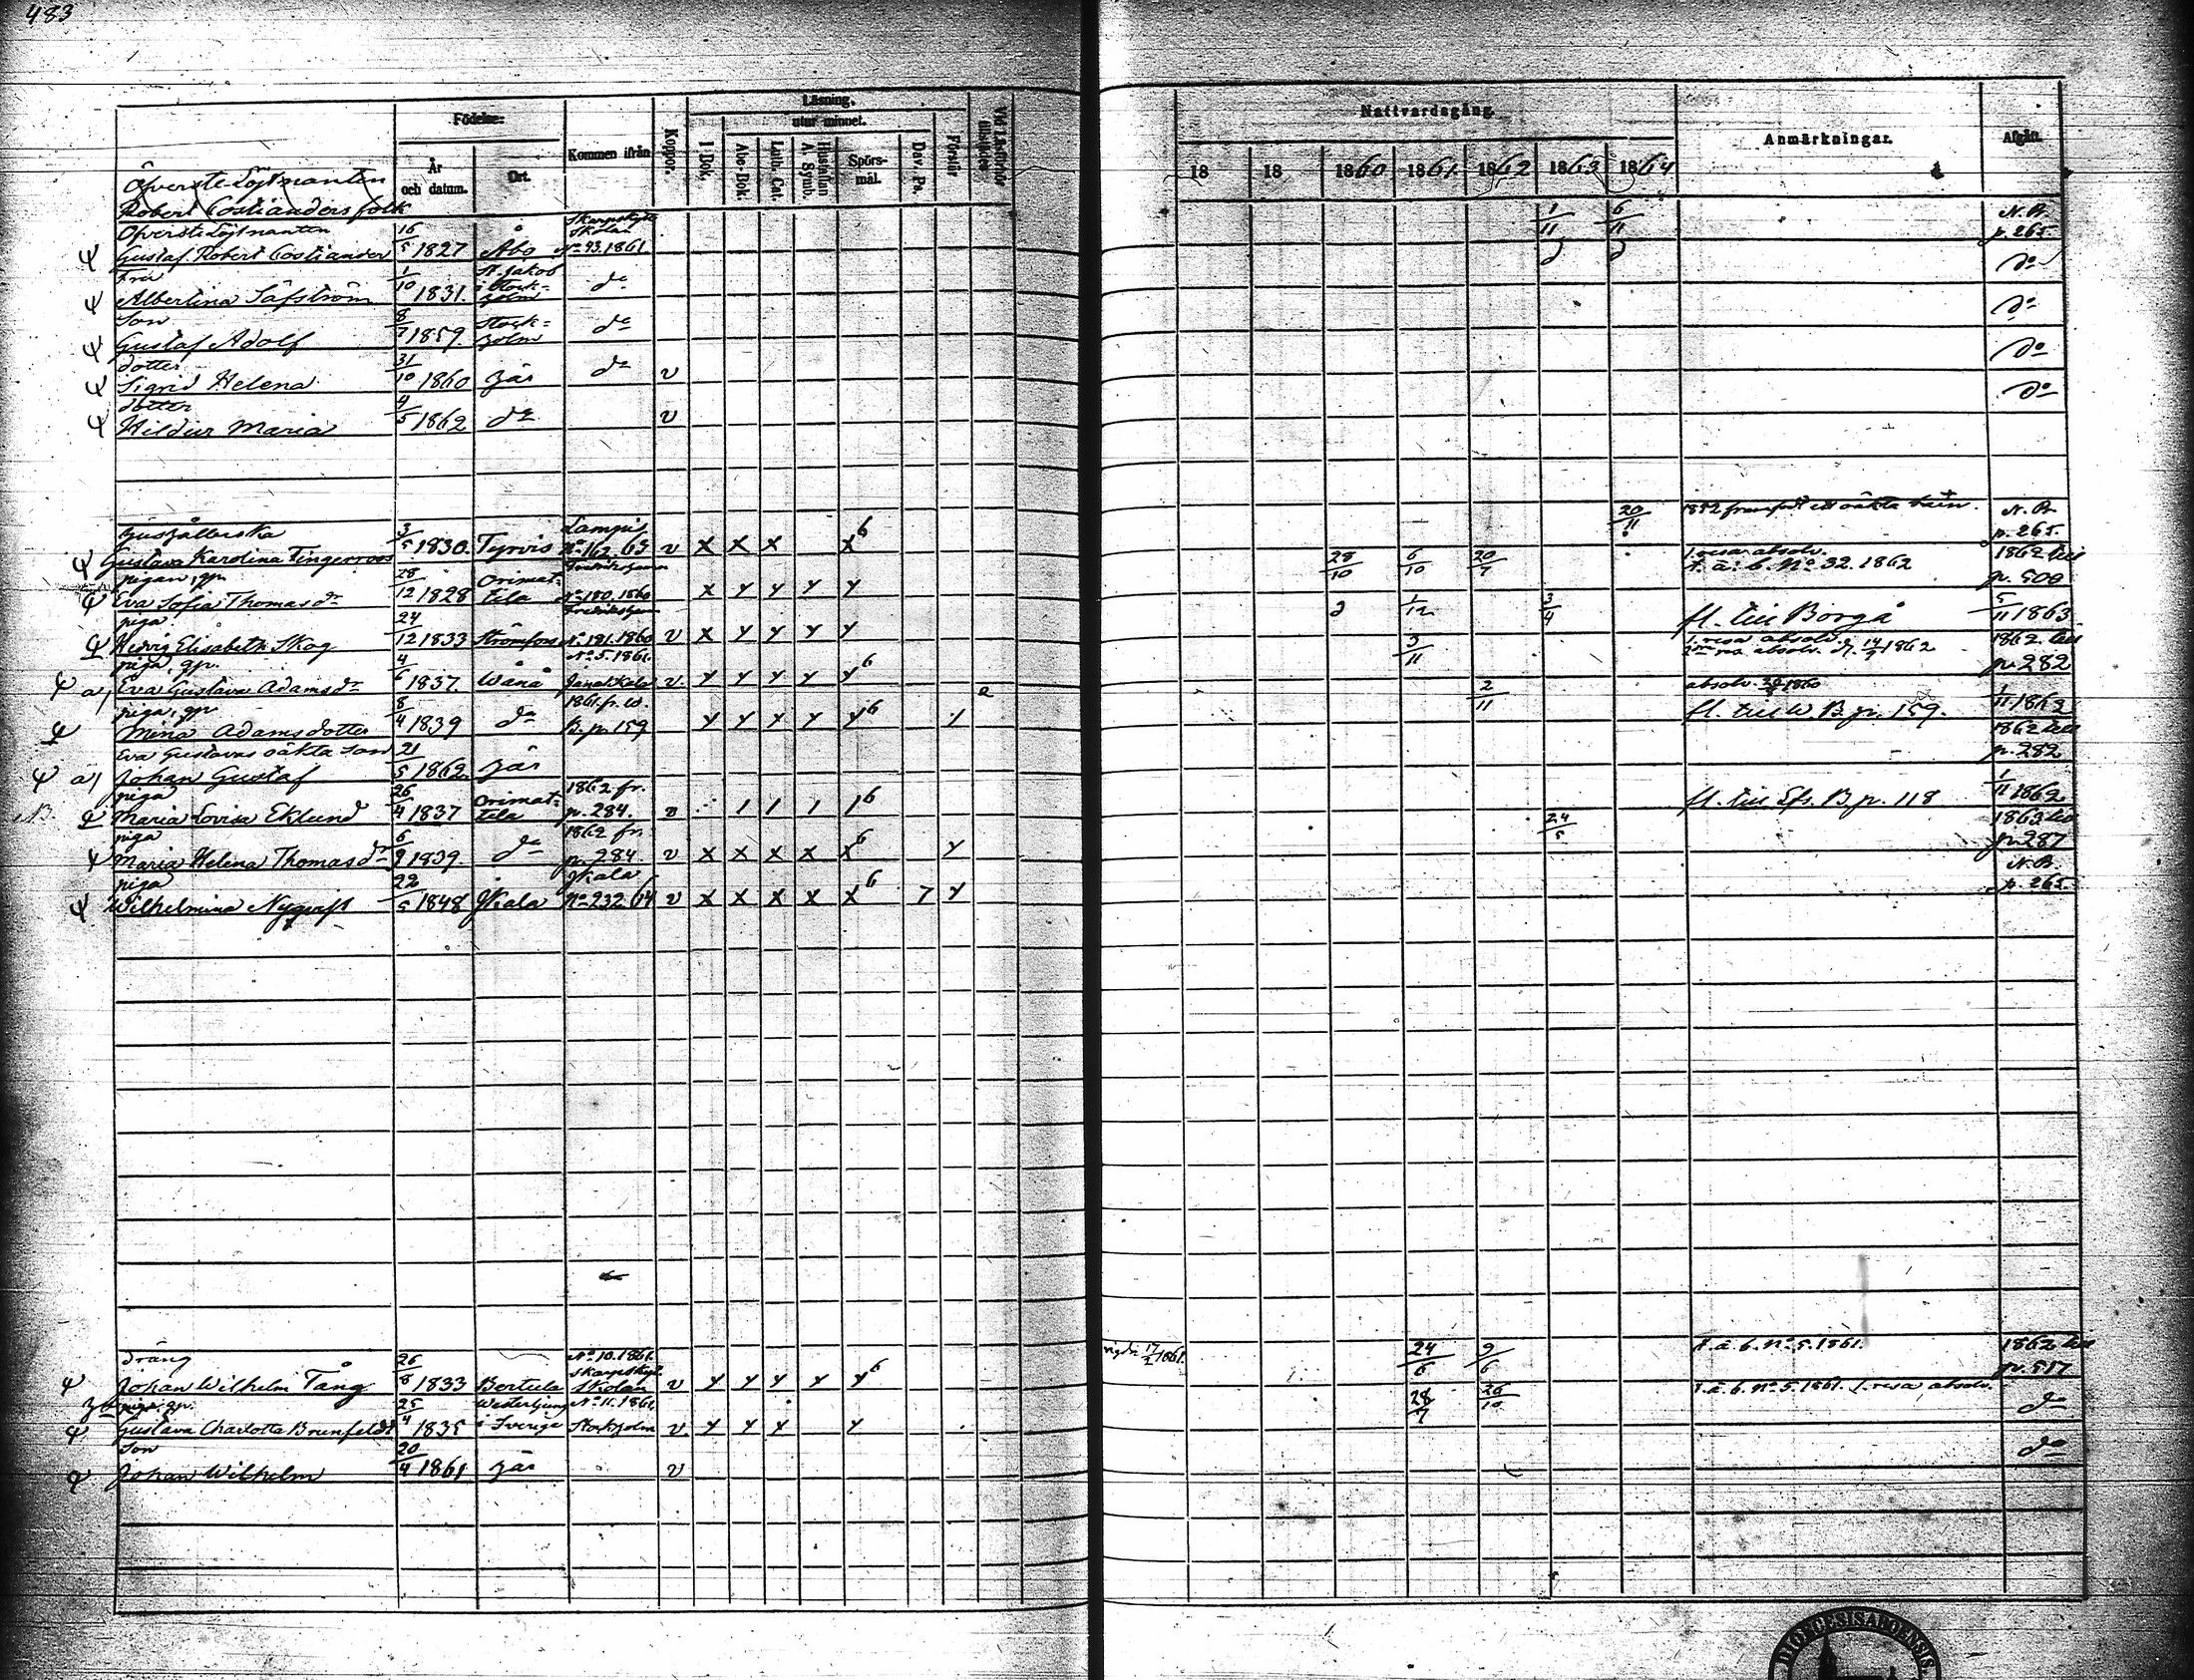 483
Födelse:
Läsning,
utur minnet.
År och datum.
Ort.
Kommen ifrån
Koppor.
I Bok.
Abc-Bok
Luth. Cat.
Hustaflan A. Symb.
Spörsmål.
Dav. Ps.
Förstår
Nattvardsgång.
Anmärkningar.
Afgått.
18 18 1860 1861 1862 1863 1864
Öfverste-Löjtnanten
Robert Costianders folk
Öfverste Löjtnanten Gustaf Robert Costiander 16/5 1827 Åbo Skarpskytte Skolan No 93.1861. 1/11 6/11 N.B. p. 265
Fru Albertina Säfström 1/10 1831. St. Jakob i Stockholm do do
Son Gustaf Adolf 8/7 1859 Stockholm do do
dotter Sigrid Helena 31/10 1860 här do v do
dotter Hildur Maria 4/5 1862 do v do
Hushållerska Gustava Karolina Fingerroos 3/5 1830. Tyrvis Lampis No 162. 63 v x x x x 6 20/11 N.B. p. 265.
pigan, gp. Eva Sofia Thomasdr 28/12 1828 Orimattila Fredrikshamn No 180. 1860 x y y y y 28/10 6/10 20/7 1. resa absolv. f. ä. b. No 32. 1862 1862 till p. 500
piga Hedvig Elisabeth Skog 24/12 1833 Strömfors Fredrikshamn No 181. 1860 v x y y y y 1/12 3/4 fl. till Borgå 5/11 1863
piga, gp. Eva Gustava Adamsdr 4/6 1837. Wånå No 5. 1861. Janakkala v. y y y y y 6 3/11 1. resa absolv. absolv. d. 14/9 1862 1862 till p. 282
piga, gp. Mina Adamsdotter 8/4 1839 do 1861. fr. W. B. p. 159 y y y y y 6 2/11 absolv. 1860 fl. till W. B. p. 159. 1/11 1862
Eva Gustavas oäkta son Johan Gustaf 21/5 1862. här 1862 till p. 282
piga Maria Lovisa Eklund 26/4 1837 Orimattila 1862 fr. p. 284. 6 fl. till Efs. B. p. 118 1/11 1862
piga Maria Helena Thomasdr 6/9 1839. do 1862 fr. p. 284 v x x x x x 6 y 24/5 1863 till p. 287
piga Wilhelmina Nygräft 22/5 1848 Jkala Jkala No 232 64 v x x x x x 6 7 y N.B. p. 265.
dräng Johan Wilhelm Tång 26/8 1833 Bertula No 10. 1861. Skarpskytt. Skolan v y y y y y 6 vigde 17/2 1861. 24/6 9/6 f. ä. b. No 5. 1861. 1862 till p. 517
piga, gp. Gustava Charlotta Brunfeldt 25/4 1835 i Sverige No 11. 1861. Stockholm v y y y y 28/7 26/10 f. ä. b. No 5. 1861. 1. resa absolv. do
Son Johan Wilhelm 20/4 1861 här v do
DIOECESIS ABOENSIS